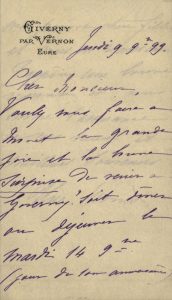 GIVERNY
PAR VERNON
EURE
Jeudi 9 9bre 99.
Cher Monsieur,
Voulez vous faire à
Monet la grande
joie et la bonne
surprise de venir à
Giverny soit dîner
ou déjeuner le
mardi 14 9bre
(jour de son anniversaire